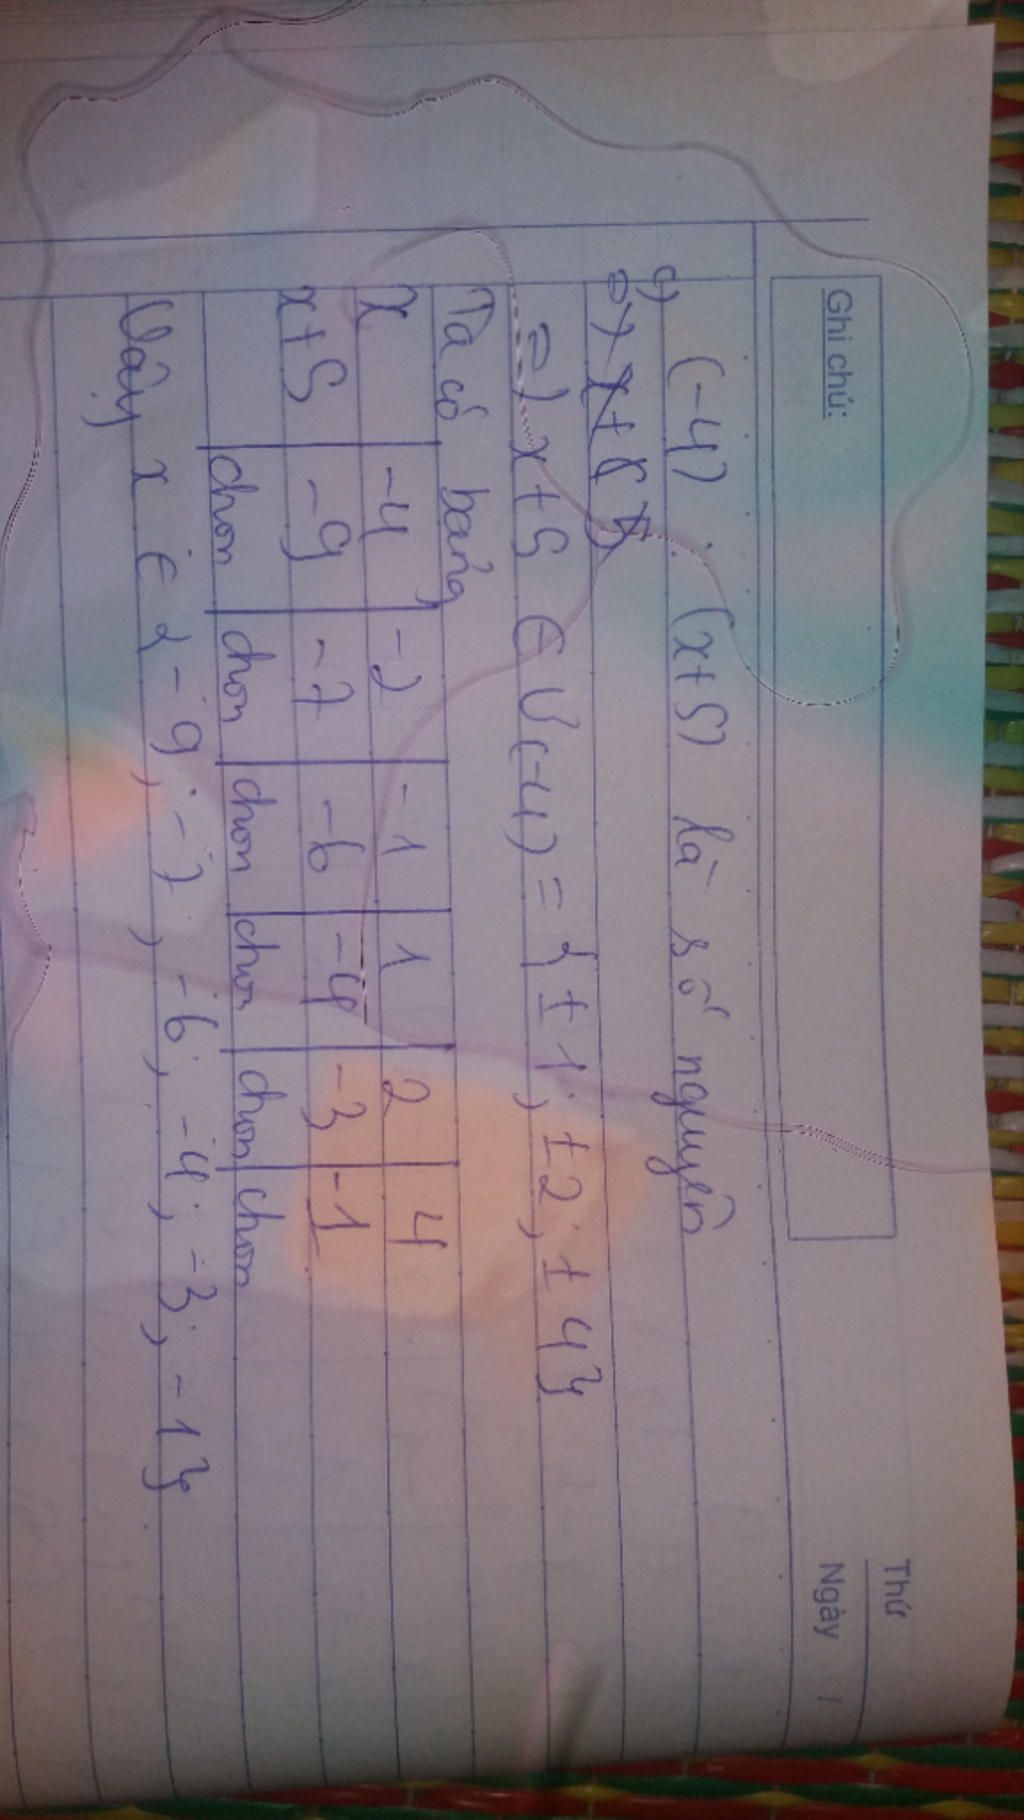 Thứ
Ngày /
Ghi chú:
(-4) : (x+5) là số nguyên
=) x+5 ∈ Ư(-4) = {±1; ±2; ±4}
Ta có bảng
x -4 -2 -1 1 2 4
x+5 -9 -7 -6 -4 -3 -1
chọn chọn chọn chọn chọn chọn
Vậy x ∈ {-9; -7; -6; -4; -3; -1}